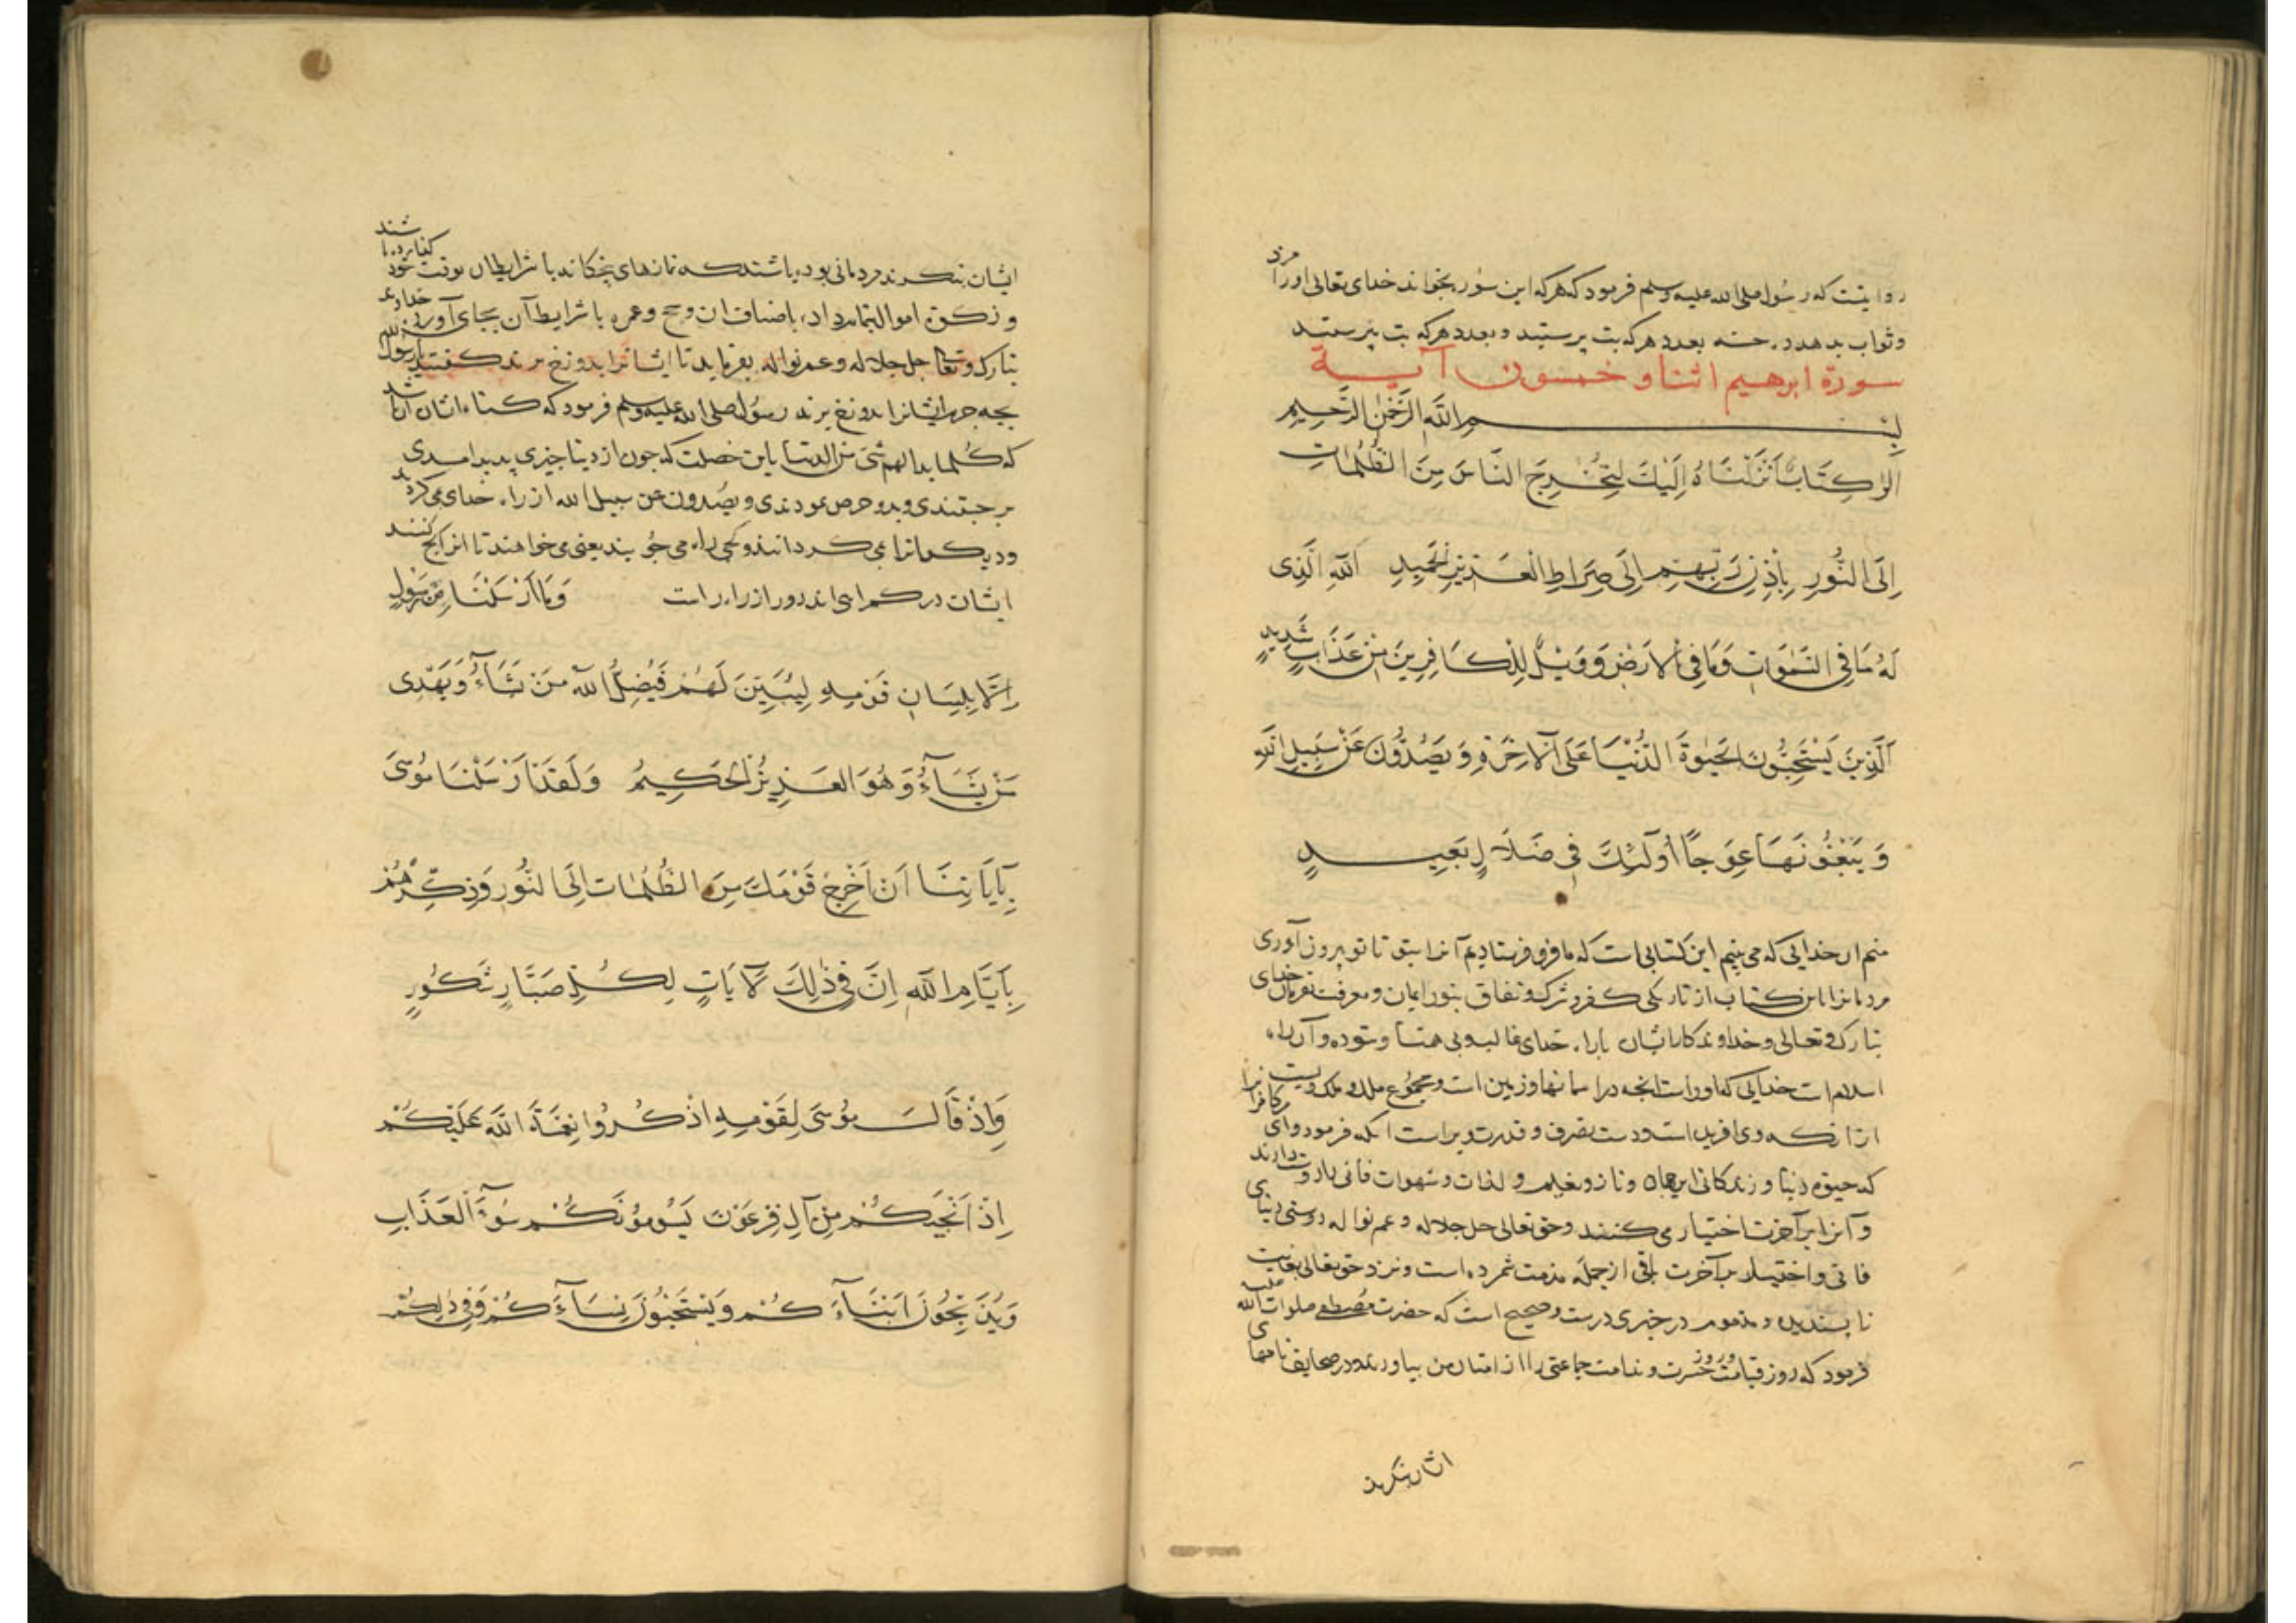 روایتست که رسول صلی الله علیه وسلم فرمود که هرکه این سوره بخواند خدای تعالی او را مزد
وثواب بدهد ده حسنه بعدد هرکه بت پرستید و بعدد هرکه بت نپرستید
سورة ابرهیم اثنا و خمسون آیة
بسم الله الرحمن الرحیم
الٓر كِتَابٌ أَنْزَلْنَاهُ إِلَيْكَ لِتُخْرِجَ النَّاسَ مِنَ الظُّلُمَاتِ
إِلَى النُّورِ بِإِذْنِ رَبِّهِمْ إِلَى صِرَاطِ الْعَزِيزِ الْحَمِيدِ اَللّٰهِ الَّذِى
لَهُ مَا فِي السَّمٰوَاتِ وَمَا فِي الْاَرْضِ وَوَيْلٌ لِلْكَافِرِينَ مِنْ عَذَابٍ شَدِيدٍ
اَلَّذِينَ يَسْتَحِبُّونَ الْحَيٰوةَ الدُّنْيَا عَلَى الْآخِرَةِ وَيَصُدُّونَ عَنْ سَبِيلِ اللّٰهِ
وَيَبْغُونَهَا عِوَجًا أُولٰئِكَ فِي ضَلَالٍ بَعِيدٍ
منم ان خدایی که می بینم این کتابی است که ما فرو فرستادیم آنرا بتو تا تو برون آوری
مردمانرا باین کتاب از تاریکی کفر و شرک و نفاق بنور ایمان و معرفت بفرمان خدای
تبارک و تعالی و خداوندکار ایشان با راه خدای غالب و بی همتا و ستوده و آن راه
اسلام است خدایی که اوراست انچه در اسمانها و زمین است و مجموع ملک و ملک ویست
ازانکه وی افریده است و دست تصرف و قدرت ویراست انکه فرمود وای مر کافرانرا
که حیوة دنیا و زندکانی این جهان و ناز و نعیم و لذات و شهوات فانی را دوست دارند
و آنرا بر آخرت اختیار می کنند و حق تعالی جل جلاله و عم نواله دوستی دنیای
فانی و اختیار بر آخرت باقی از جمله مذمت شمرده است و نزد حق تعالی بغایت
ناپسندیده و مذموم در خبری درست و صحیح است که حضرت مصطفی صلوات الله علیه
فرمود که روز قیامت و روز حسرت و ندامت جماعتی را از امتان من بیاورند و در صحایف نامهای
ایشان بنکرند
ایشان بنکرند مردمانی بوده باشند که نمازهای پنجکانه با شرایط ان بوقت خود کفارده باشند
و زکوة اموال بتمام داده باضعاف ان و حج و عمره با شرایط آن بجای آورده خداوند
تبارک و تعالی جل جلاله و عم نواله بفرماید تا ایشانرا بدوزخ برند کفتند یا رسول الله
بچه جرم ایشانرا بدوزخ برند رسول صلی الله علیه وسلم فرمود که کناه ایشان آن باشد
که کلما بدا لهم شئ من الدنیا باین خصلت که چون از دنیا چیزی پدید امدی
بر جستندی و بدو حرص نمودندی و یصدون عن سبیل الله از راه خدای می کردند
و دیکرانرا می کردانیدند و کجی راه می جویند یعنی می خواهند تا انرا کج کنند
ایشان در کمراهی اند دور از راه راست وَمَا أَرْسَلْنَا مِنْ رَسُولٍ
إِلَّا بِلِسَانِ قَوْمِهِ لِيُبَيِّنَ لَهُمْ فَيُضِلُّ اللّٰهُ مَنْ يَشَآءُ وَيَهْدِى
مَنْ يَشَآءُ وَهُوَ الْعَزِيزُ الْحَكِيمُ وَلَقَدْ أَرْسَلْنَا مُوسَىٰ
بِآيَاتِنَا اَنْ اَخْرِجْ قَوْمَكَ مِنَ الظُّلُمَاتِ إِلَى النُّورِ وَذَكِّرْهُمْ
بِاَيَّامِ اللّٰهِ إِنَّ فِي ذٰلِكَ لَآيَاتٍ لِكُلِّ صَبَّارٍ شَكُورٍ
وَإِذْ قَالَ مُوسَىٰ لِقَوْمِهِ اذْكُرُوا نِعْمَةَ اللّٰهِ عَلَيْكُمْ
اِذْ اَنْجَيكُمْ مِنْ آلِ فِرْعَوْنَ يَسُومُونَكُمْ سُوٓءَ الْعَذَابِ
وَيُذَبِّحُونَ اَبْنَآءَكُمْ وَيَسْتَحْيُونَ نِسَآءَكُمْ وَفِي ذٰلِكُمْ